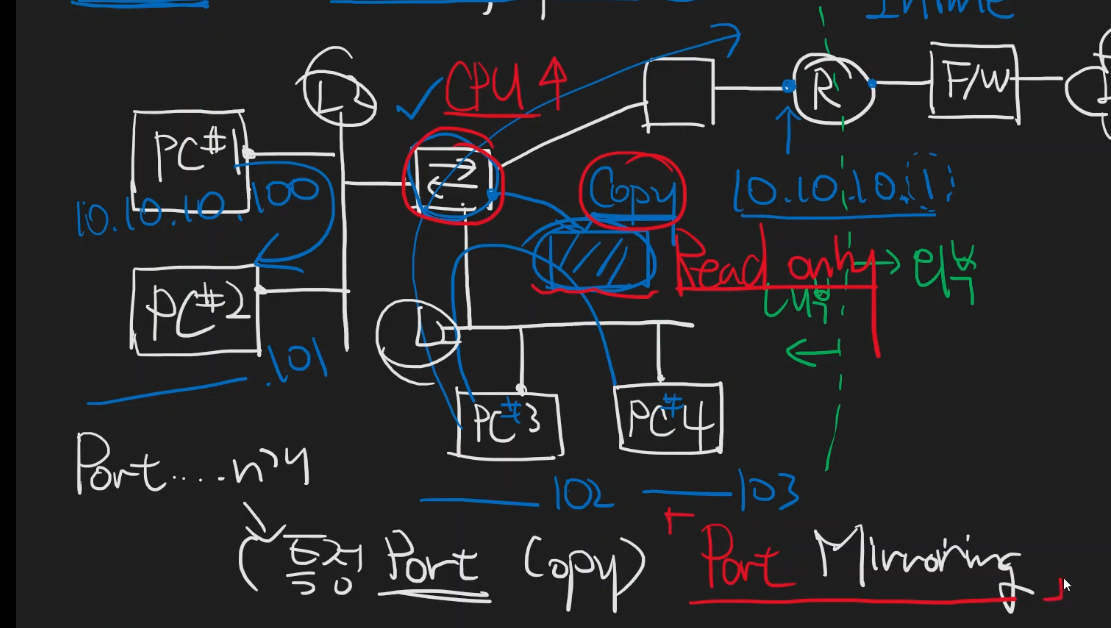 Inline
CPU ↑
R
F/W
L2
PC#1
10.10.10.100
Copy
10.10.10.1
Read only
외부
내부
PC#2
.101
L2
PC#3
PC#4
102
103
Port....n개
(특정 Port Copy)
「Port Mirroring」